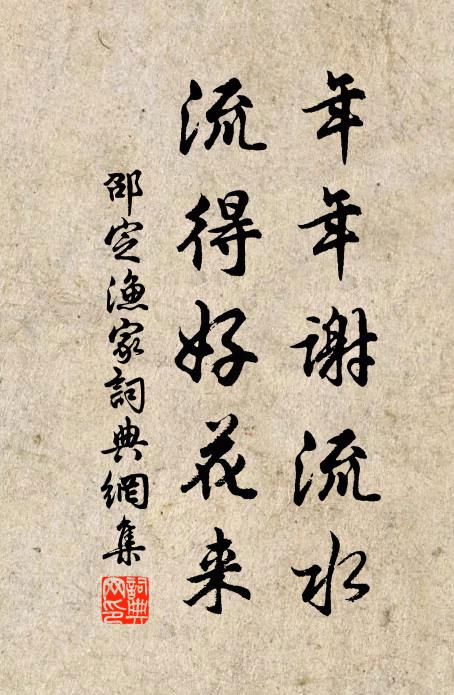 年年谢流水
流得好花来
邵定渔家詞典網集
詞典
网印